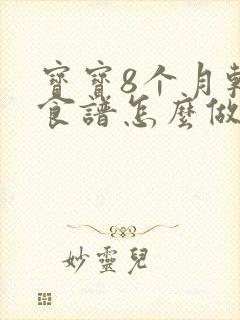 寶寶8个月輔
食譜怎麼做
妙靈兒